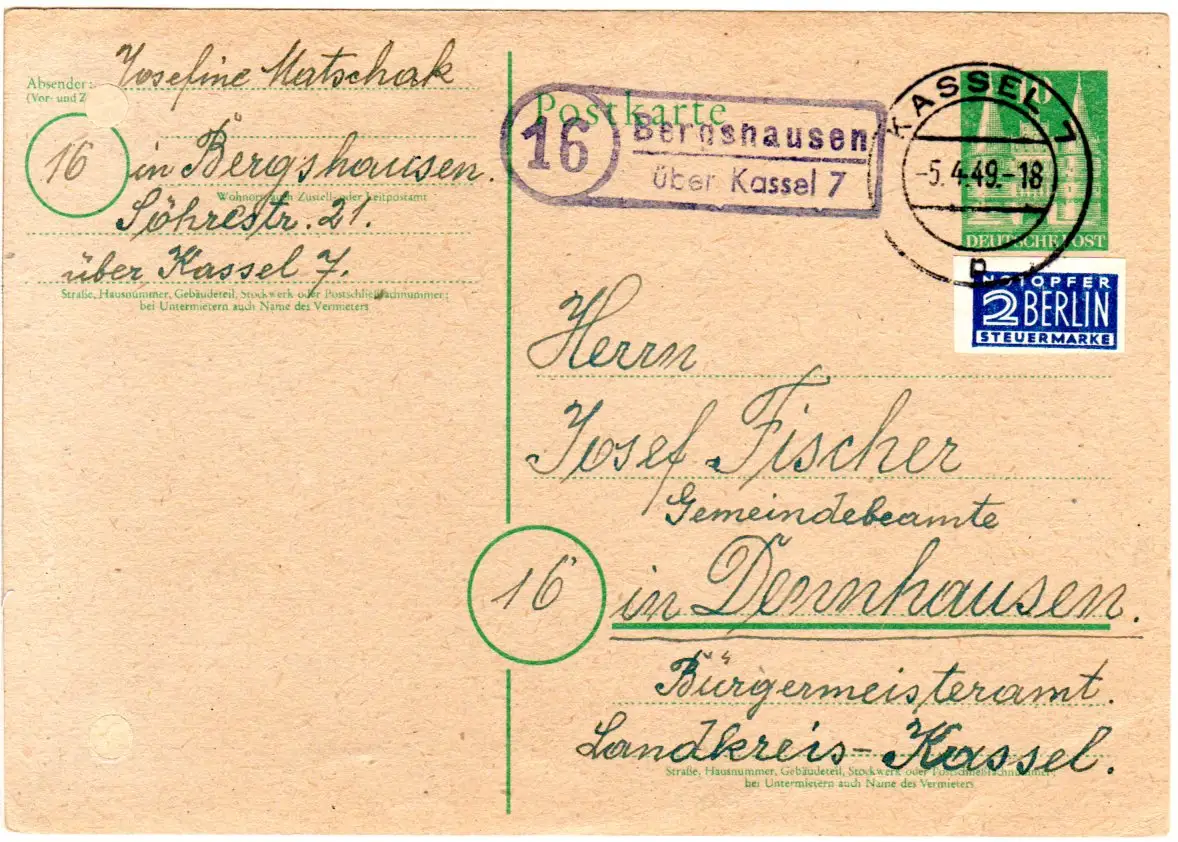 Absender:
(Vor- und Z
Josefine Matschak
16
in Bergshausen.
Wohnort, auch Zustell- oder Leitpostamt
Söhrestr. 21.
über Kassel 7.
Straße, Hausnummer, Gebäudeteil, Stockwerk oder Postschließfachnummer;
bei Untermietern auch Name des Vermieters
Postkarte
16
Bergshausen
über Kassel 7
KASSEL 7
-5.4.49.-18
p
DEUTSCHE POST
NOTOPFER
2 BERLIN
STEUERMARKE
Herrn
Josef Fischer
Gemeindebeamte
16
in Dennhausen.
Bürgermeisteramt.
Landkreis-Kassel.
Straße, Hausnummer, Gebäudeteil, Stockwerk oder Postschließfachnummer;
bei Untermietern auch Name des Vermieters